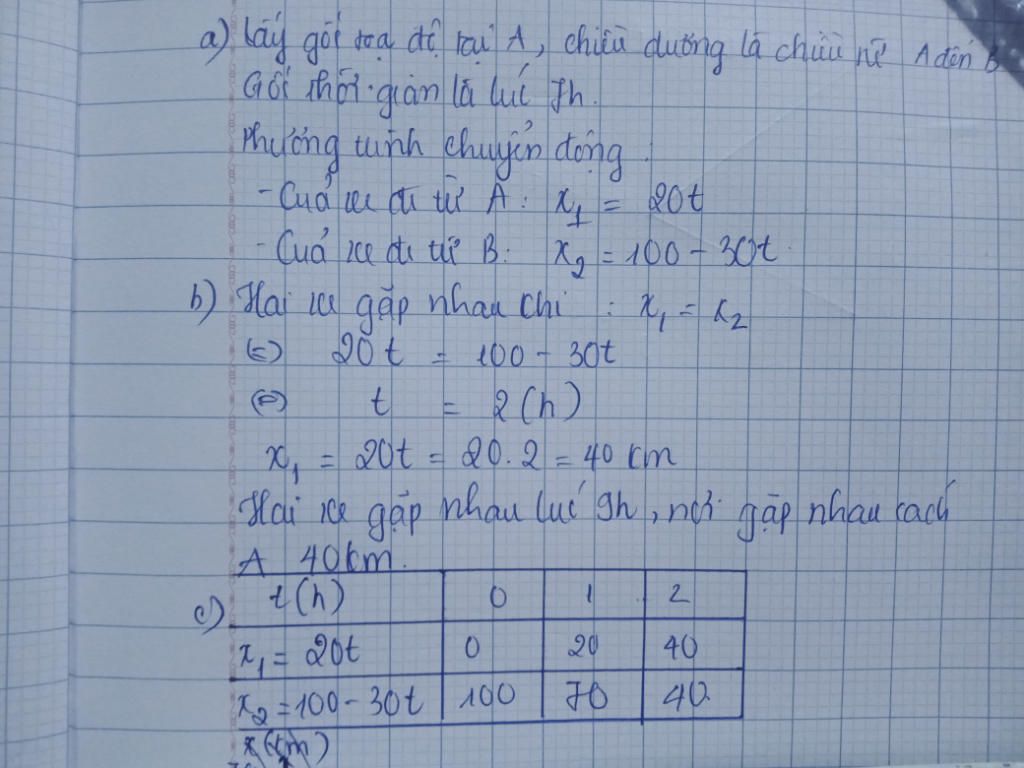 a) Lấy gốc tọa độ tại A, chiều dương là chiều từ A đến B
Gốc thời gian là lúc 7h.
Phương trình chuyển động :
- Của xe đi từ A : x₁ = 20t
- Của xe đi từ B : x₂ = 100 - 30t.
b) Hai xe gặp nhau chi : x₁ = x₂
(=) 20t = 100 - 30t
(=) t = 2 (h)
x₁ = 20t = 20.2 = 40 km
Hai xe gặp nhau lúc 9h, nơi gặp nhau cách
A 40km.
c) t(h) 0 1 2
x₁ = 20t 0 20 40
x₂ = 100 - 30t 100 70 40.
x(km)